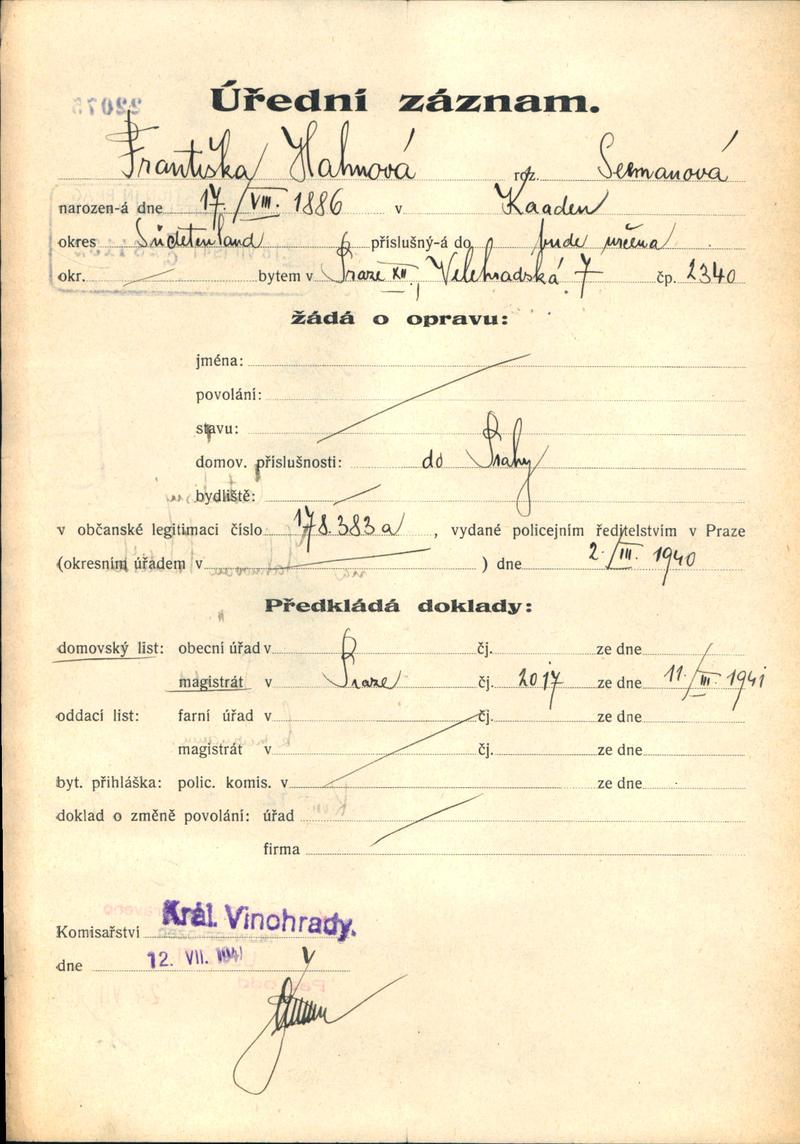 Úřední záznam.
Františka Hahnová roz. Sermanová
narozen-á dne 17./VIII. 1886 v Kaaden
okres Sudetenland příslušný-á do bude určena
okr. bytem v Praze XII, Velehradská 7 čp. 2340
žádá o opravu:
jména:
povolání:
stavu:
domov. příslušnosti: do Prahy
bydliště:
v občanské legitimaci číslo 178.383a, vydané policejním ředitelstvím v Praze
(okresním úřadem v ) dne 2./III. 1940
Předkládá doklady:
domovský list: obecní úřad v čj. ze dne
magistrát v Praze čj. 2017 ze dne 11./III. 1941
oddací list: farní úřad v čj. ze dne
magistrát v čj. ze dne
byt. přihláška: polic. komis. v ze dne
doklad o změně povolání: úřad
firma
Komisařství Král. Vinohrady.
dne 12. VII. 1941